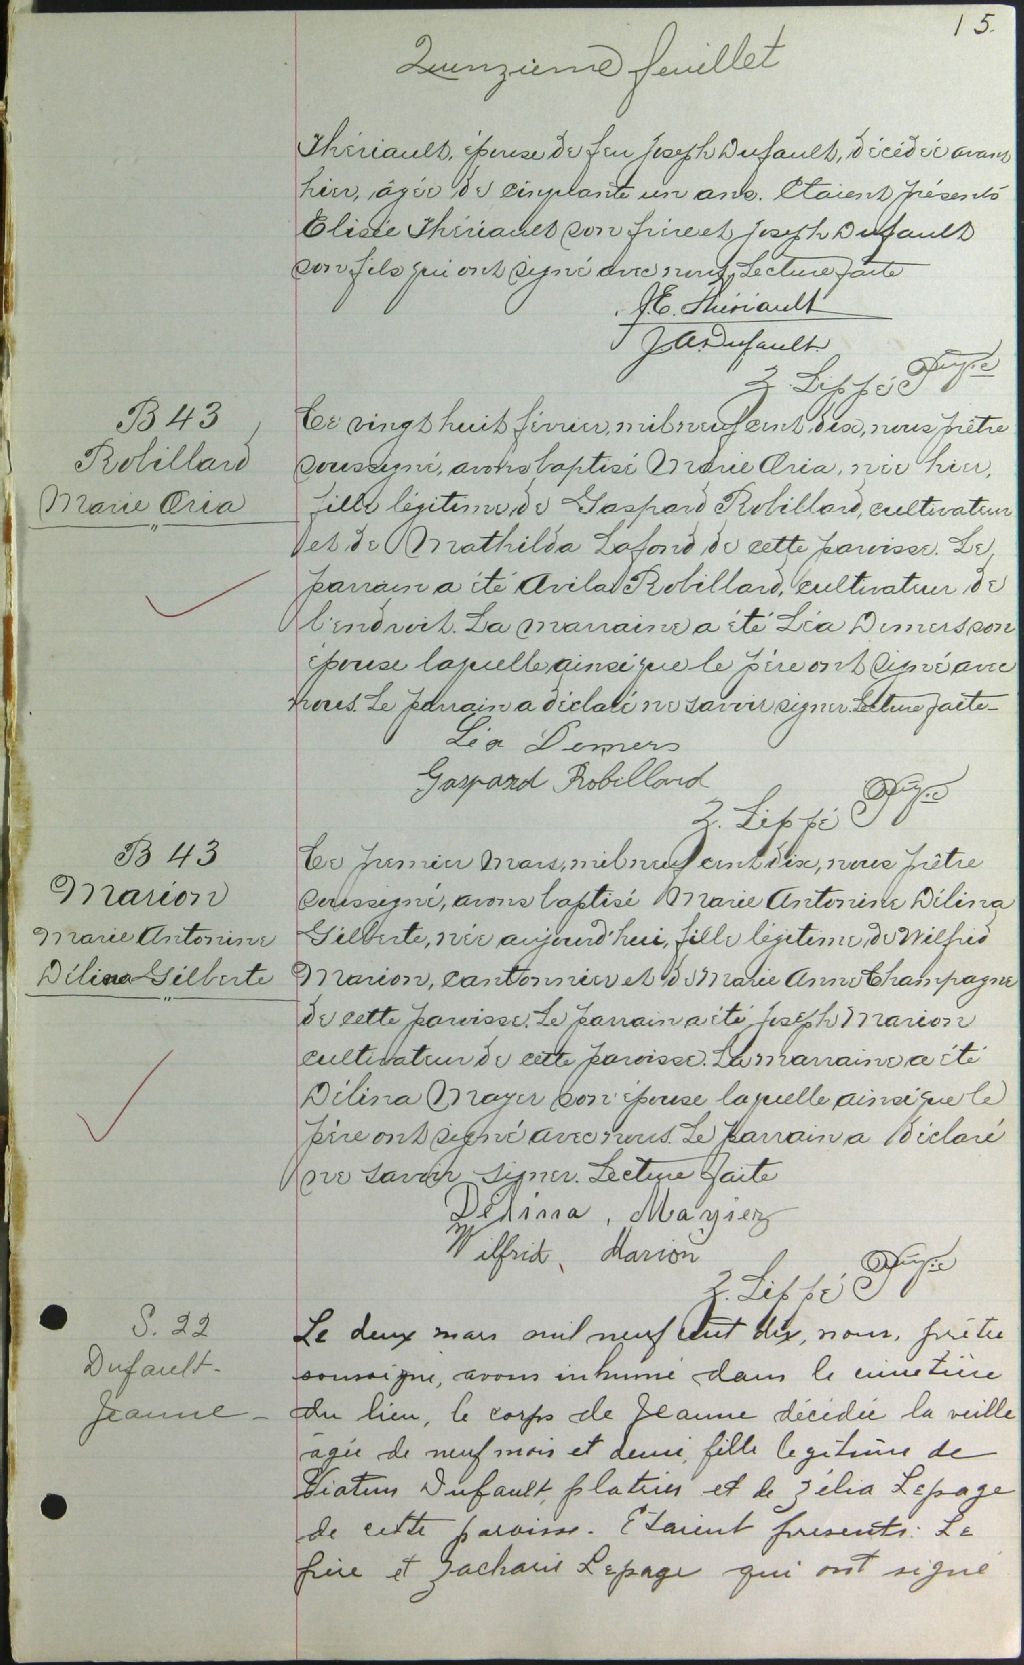 15.
Quinzième feuillet
Thériault, épouse de feu Joseph Dufault, décédée avant
hier, âgée de cinquante un ans. Etaient présents
Elisée Thériault son frère et Joseph Dufault
son fils qui ont signé avec nous, Lecture faite
J.E. Thériault
J A. Dufault.
Z. Lippé Ptre
B 43
Robillard
Marie Oria
Ce vingt huit février, mil neuf cent dix, nous prêtre
soussigné, avons baptisé Marie Oria, née hier,
fille légitime de Gaspard Robillard, cultivateur
et de Mathilda Lafond de cette paroisse. Le
parrain a été Avila Robillard, cultivateur de
l'endroit. La marraine a été Léa Demers son
épouse laquelle ainsi que le père ont signé avec
nous. Le parrain a déclaré ne savoir signer. Lecture faite
Léa Demers
Gaspard Robillard
Z. Lippé Ptre
B 43
Marion
Marie Antonine
Délina Gilberte
Ce premier Mars, mil neuf cent dix, nous prêtre
soussigné, avons baptisé Marie Antonine Délina
Gilberte, née aujourd'hui, fille légitime de Wilfrid
Marion, cantonnier et de Marie Anne Champagne
de cette paroisse. Le parrain a été Joseph Marion
cultivateur de cette paroisse. La marraine a été
Délina Mayer son épouse laquelle ainsi que le
père ont signé avec nous. Le parrain a déclaré
ne savoir signer. Lecture faite
Délina Mayier
Wilfrid Marion
Z. Lippé Ptre
S. 22
Dufault
Jeanne
Le deux mars mil neuf cent dix, nous, prêtre
soussigné, avons inhumé dans le cimetière
du lieu, le corps de Jeanne décédée la veille
âgée de neuf mois et demi, fille legitime de
Viateur Dufault, platrier et de Zélia Lepage
de cette paroisse. Etaient presents: Le
père et Zacharie Lepage qui ont signé